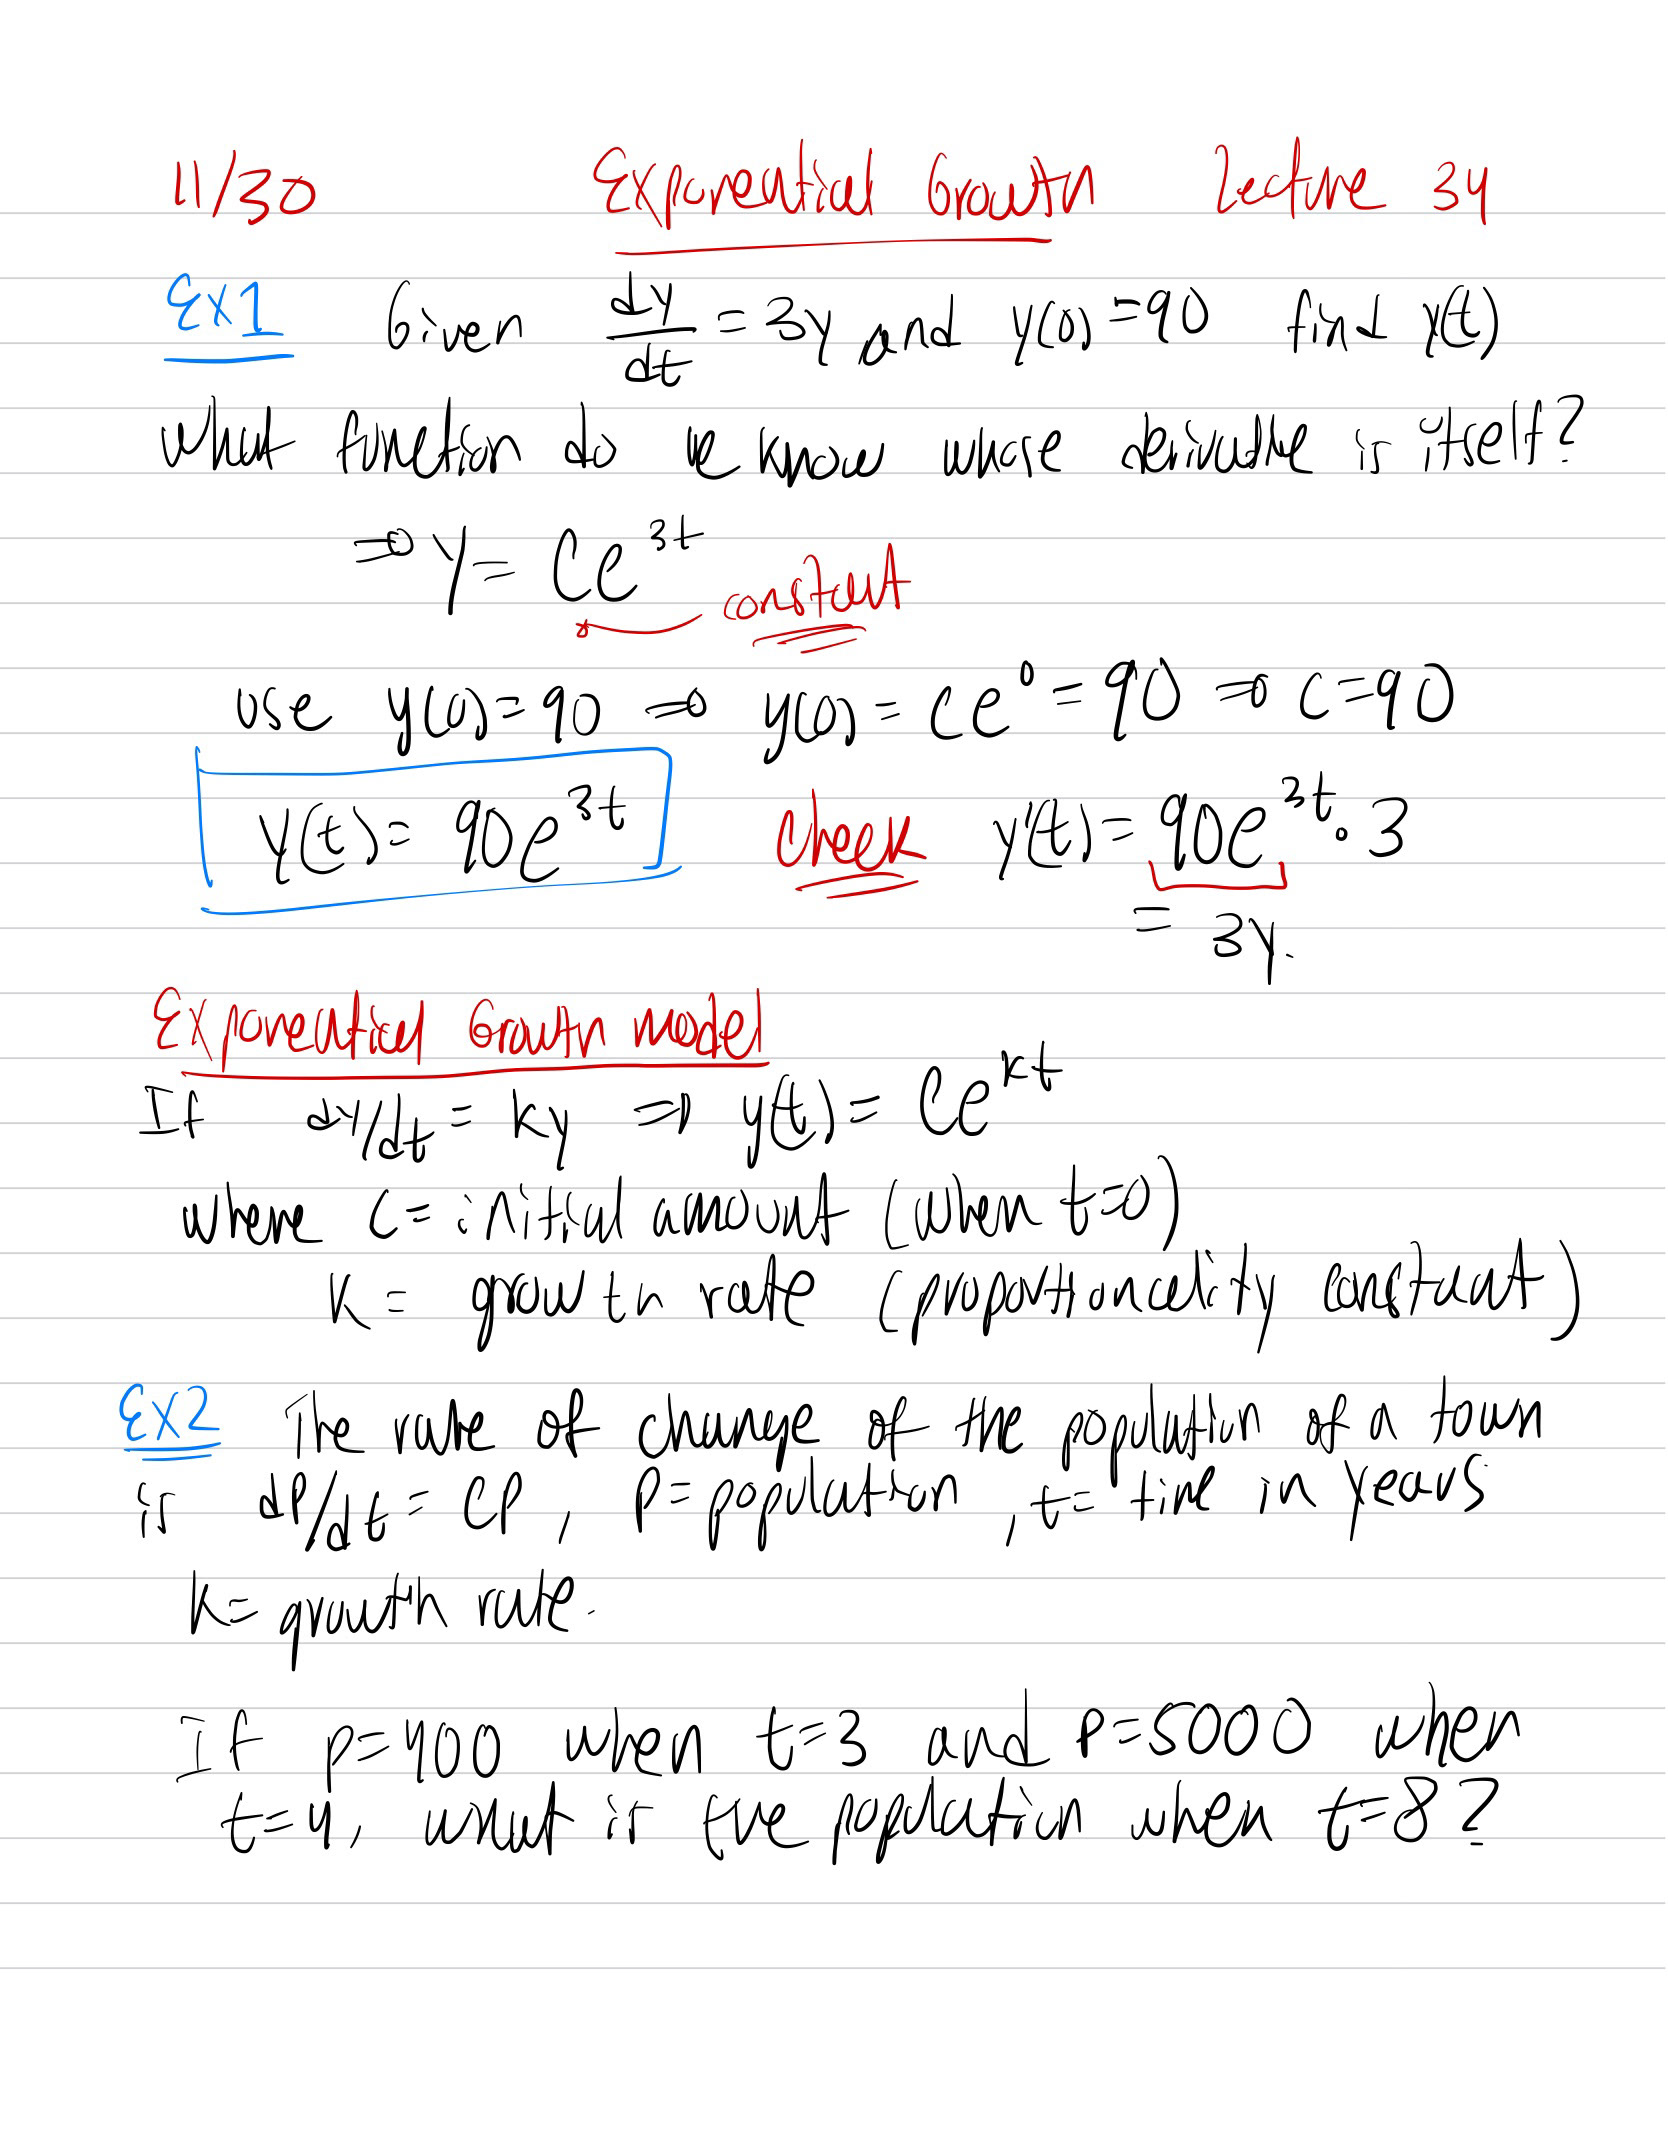 11/30 Exponential Growth Lecture 34
Ex1 Given dy/dt = 3y and y(0) = 90 find y(t)
What function do we know whose derivative is itself?
⇒ y = Ce^{3t}
constant
use y(0) = 90 ⇒ y(0) = Ce^0 = 90 ⇒ C = 90
y(t) = 90e^{3t} Check y'(t) = 90e^{3t} · 3
= 3y.
Exponential Growth model
If dy/dt = ky ⇒ y(t) = Ce^{kt}
where C = initial amount (when t=0)
k = growth rate (proportionality constant)
Ex2 The rate of change of the population of a town
is dP/dt = CP, P = population, t = time in years
k = growth rate.
If p=400 when t=3 and P=5000 when
t=4, what is the population when t=8?